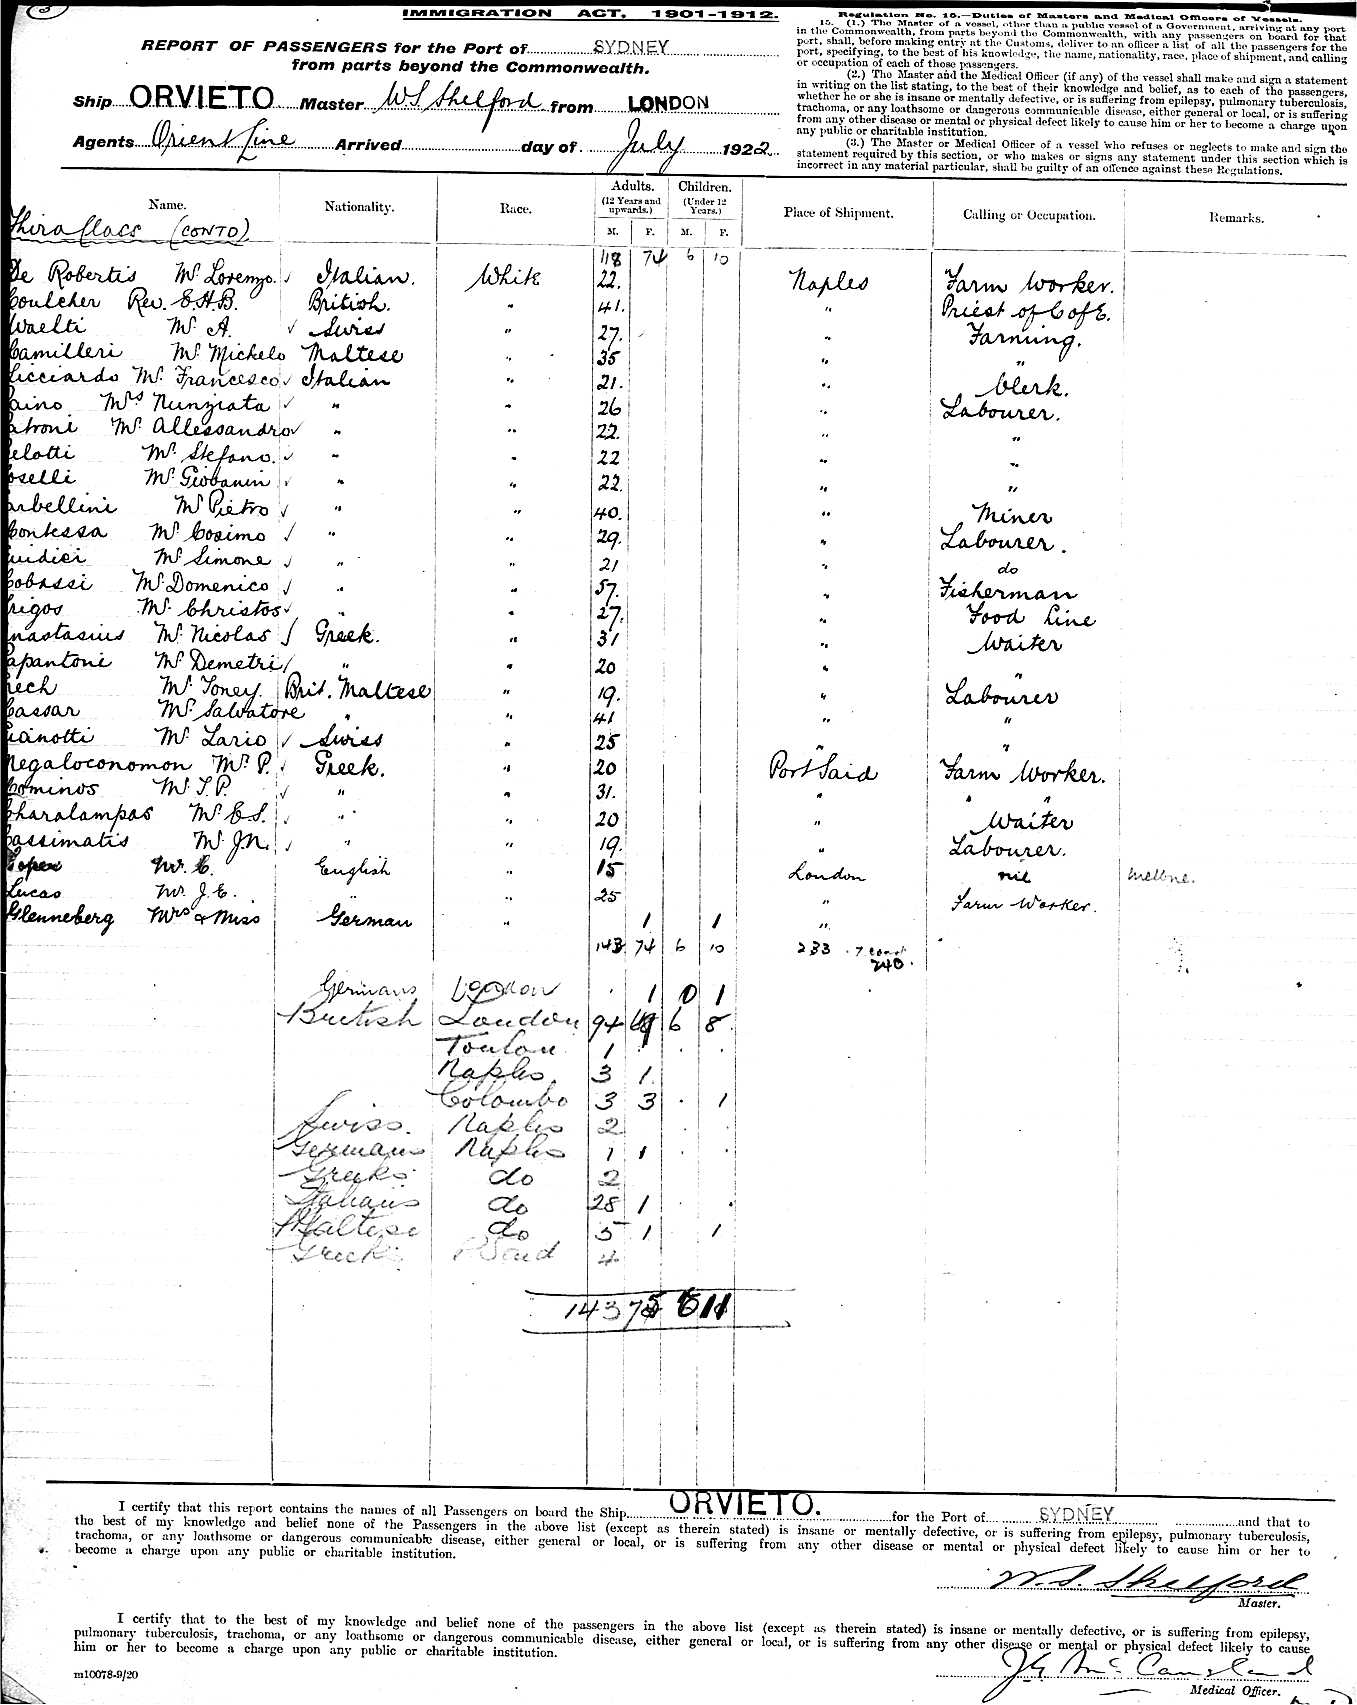 3
IMMIGRATION ACT, 1901-1912.
REPORT OF PASSENGERS for the Port of SYDNEY
from parts beyond the Commonwealth.
Ship ORVIETO Master W S Shelford from LONDON
Agents Orient Line Arrived day of July 1922
Regulation No. 15.—Duties of Masters and Medical Officers of Vessels.
15. (1.) The Master of a vessel, other than a public vessel of a Government, arriving at any port
in the Commonwealth, from parts beyond the Commonwealth, with any passengers on board for that
port, shall, before making entry at the Customs, deliver to an officer a list of all the passengers for the
port, specifying, to the best of his knowledge, the name, nationality, race, place of shipment, and calling
or occupation of each of those passengers.
(2.) The Master and the Medical Officer (if any) of the vessel shall make and sign a statement
in writing on the list stating, to the best of their knowledge and belief, as to each of the passengers,
whether he or she is insane or mentally defective, or is suffering from epilepsy, pulmonary tuberculosis,
trachoma, or any loathsome or dangerous communicable disease, either general or local, or is suffering
from any other disease or mental or physical defect likely to cause him or her to become a charge upon
any public or charitable institution.
(3.) The Master or Medical Officer of a vessel who refuses or neglects to make and sign the
statement required by this section, or who makes or signs any statement under this section which is
incorrect in any material particular, shall be guilty of an offence against these Regulations.
Name. Nationality. Race. Adults. (12 Years and upwards.) M. F. Children. (Under 12 Years.) M. F. Place of Shipment. Calling or Occupation. Remarks.
Third Class (CONTD)
118 74 6 10
De Robertis Mr Lorenzo. Italian. White 22. Naples Farm Worker.
Coulcher Rev. E.H.B. British. " 41. " Priest of C of E.
Waelti Mr A. Swiss " 27. " Farming.
Camilleri Mr Michelo Maltese " 35 " "
Licciardo Mr Francesco Italian " 21. " Clerk.
aino Mrs Nunziata " " 26 " Labourer.
atroni Mr Allessandro " " 22. " "
elotti Mr Stefano. " " 22 " "
oselli Mr Giovanin " " 22. " "
arbellini Mr Pietro " " 40. " Miner
Contessa Mr Cosimo " " 29. " Labourer.
uidici Mr Simone " " 21 " do
Cobassi Mr Domenico " " 57. " Fisherman
rigos Mr Christos " " 27. " Food Line
nastasius Mr Nicolas Greek. " 31 " Waiter
apantoni Mr Demetri " " 20 " "
rech Mr Toney. Brit. Maltese " 19. " Labourer
Cassar Mr Salvatore " " 41 " "
uanotti Mr Lario Swiss " 25 " "
Megaloconomon Mr P. Greek. " 20 Port Said Farm Worker.
Cominos Mr T.P. " " 31. " " "
Charalampas Mr C.S. " " 20 " Waiter
Cassimatis Mr J.N. " " 19. " Labourer.
Mr. C. English " 15 London nil Melbne.
Lucas Mr J.E. " " 25 " Farm Worker.
Glenneberg Mrs & Miss German " 1 1 "
143 74 6 10 233 . 7 const
240.
Germans London . 1 0 1
British London 94 6 8
Toulon 1 . .
Naples 3 1
Colombo 3 3 . 1
Swiss. Naples 2 . .
Germans Naples 1 1 . .
Greeks do 2
Italians do 28 1 .
Maltese do 5 1 1
Greeks P Said 4
143 75 6 11
I certify that this report contains the names of all Passengers on board the Ship ORVIETO. for the Port of SYDNEY and that to
the best of my knowledge and belief none of the Passengers in the above list (except as therein stated) is insane or mentally defective, or is suffering from epilepsy, pulmonary tuberculosis,
trachoma, or any loathsome or dangerous communicable disease, either general or local, or is suffering from any other disease or mental or physical defect likely to cause him or her to
become a charge upon any public or charitable institution.
W. S. Shelford
Master.
I certify that to the best of my knowledge and belief none of the passengers in the above list (except as therein stated) is insane or mentally defective, or is suffering from epilepsy,
pulmonary tuberculosis, trachoma, or any loathsome or dangerous communicable disease, either general or local, or is suffering from any other disease or mental or physical defect likely to cause
him or her to become a charge upon any public or charitable institution.
m10078-9/20
Medical Officer.